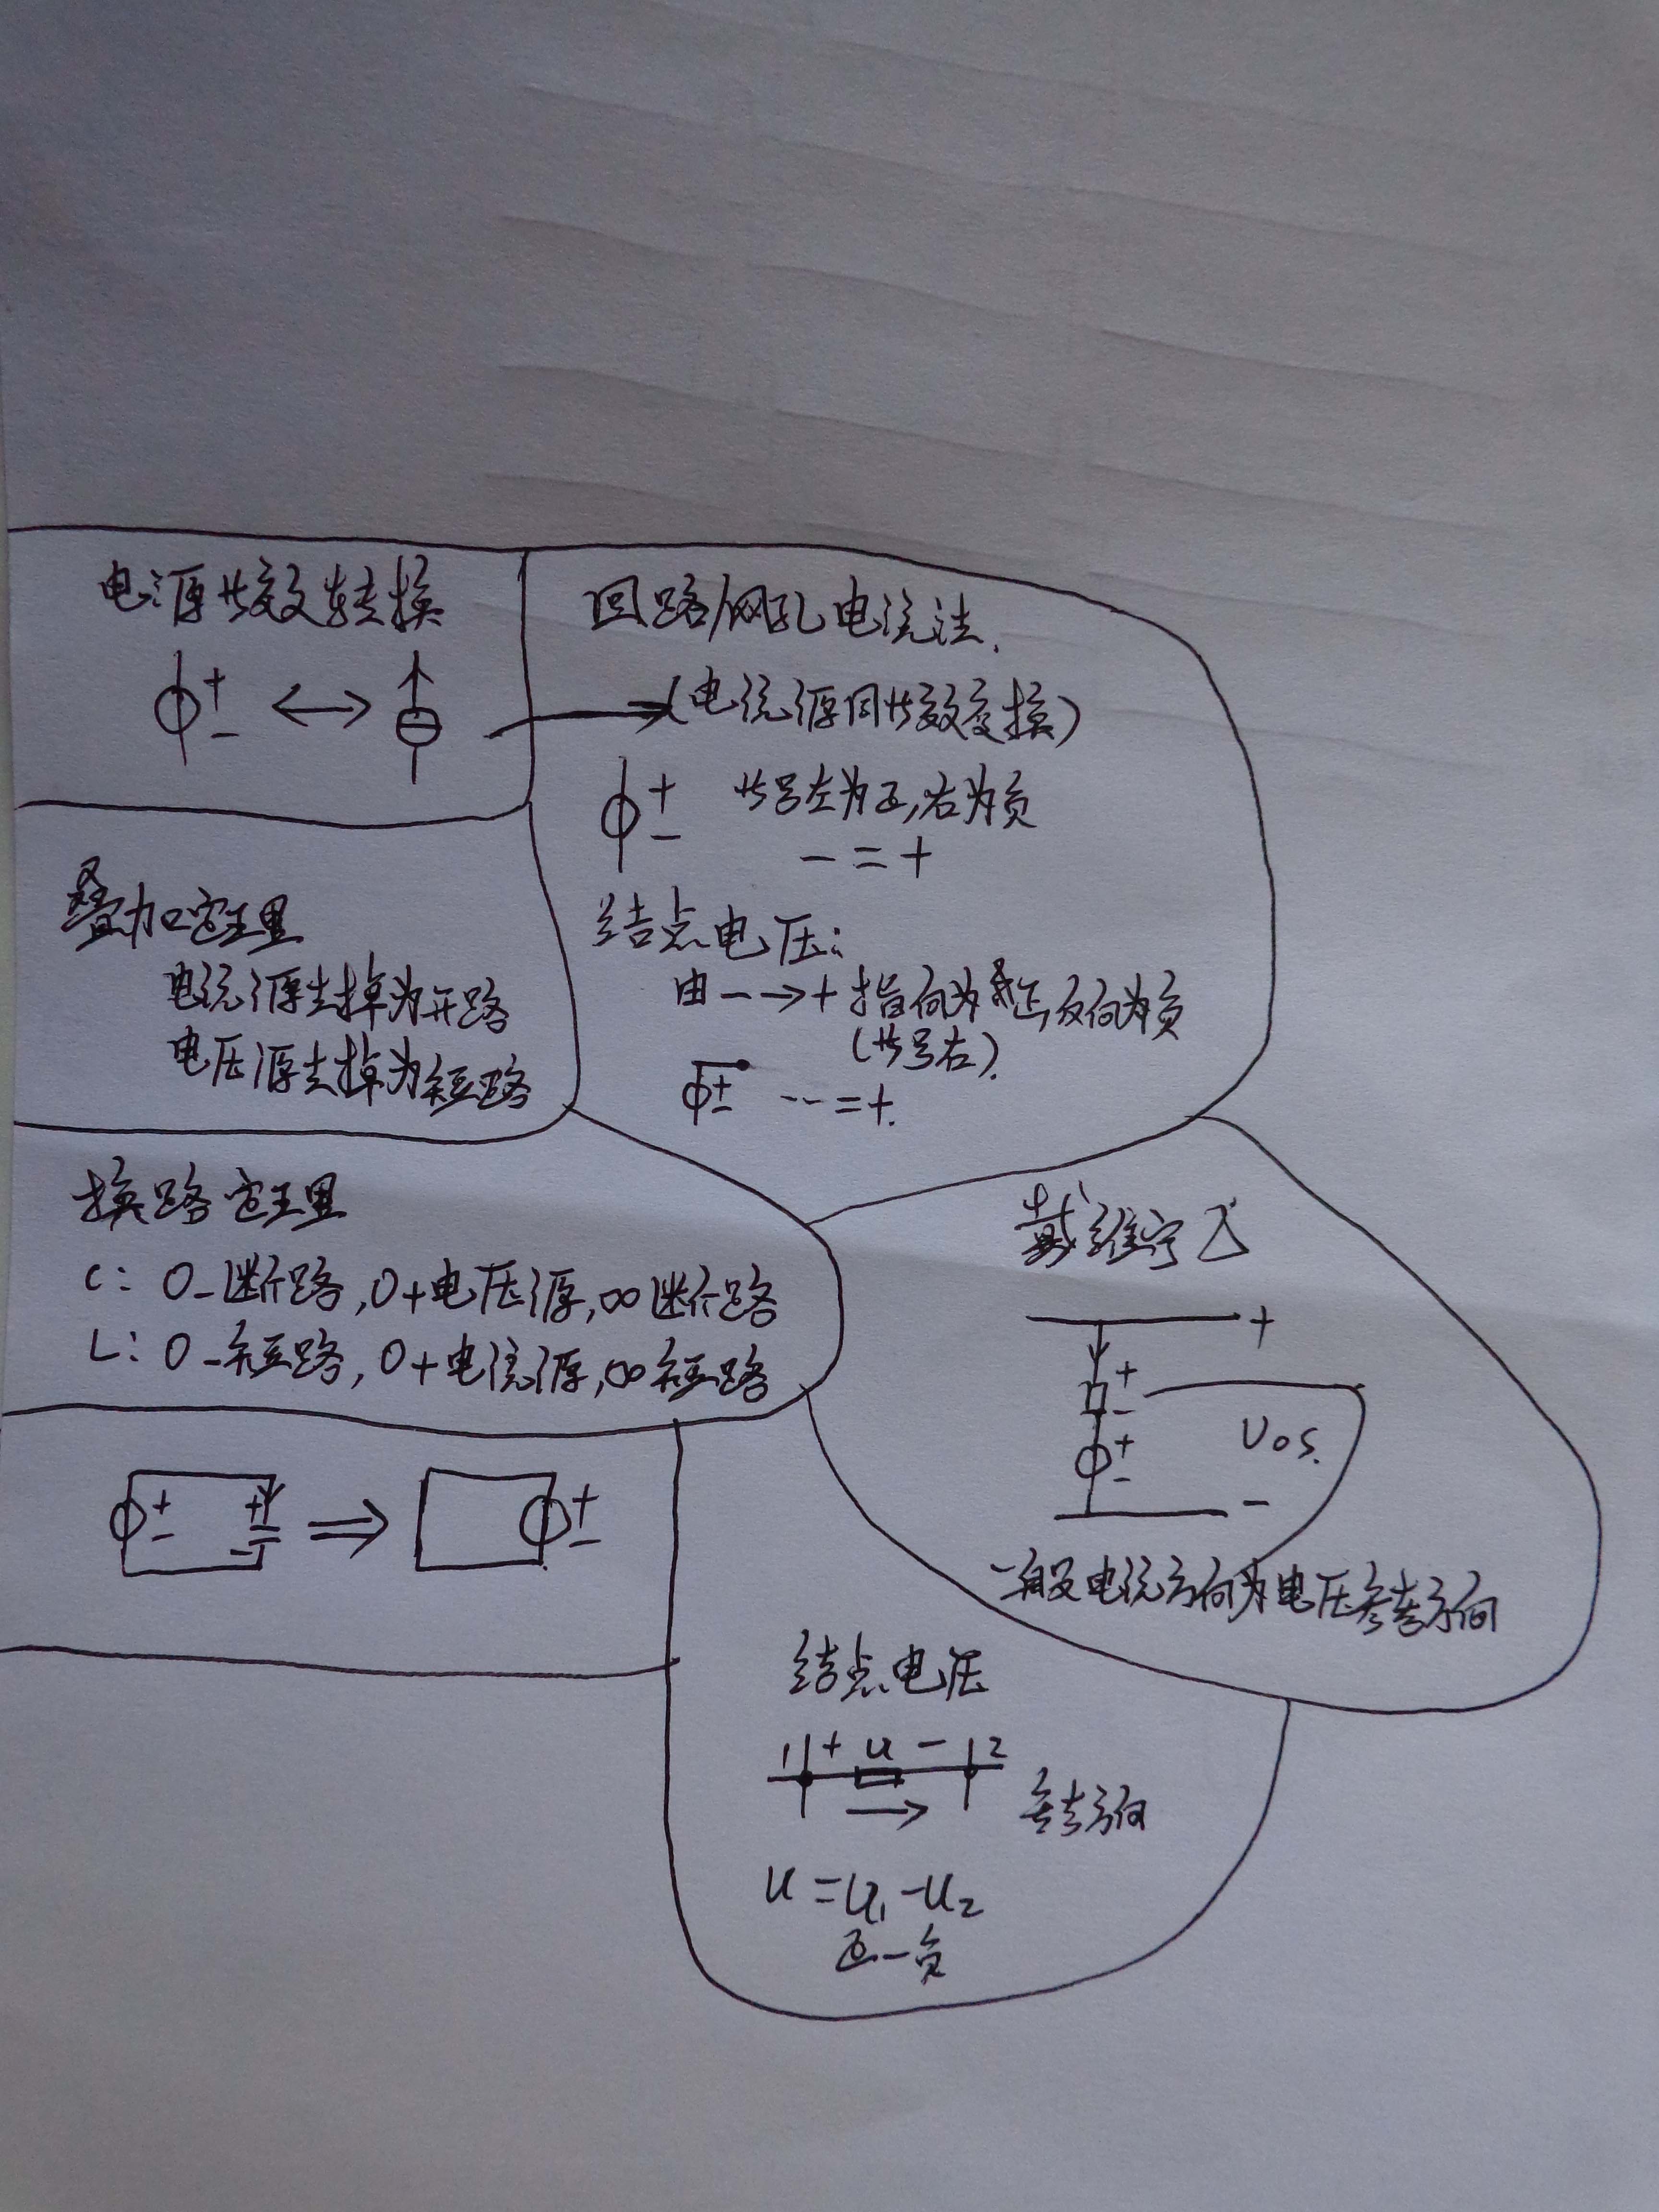 电源等效转换
+
-
回路/网孔电流法.
(电流源同等效变换)
+
-
等号左为正,右为负
- = +
结点电压:
由 - → + 指向为正,反向为负
(等号右).
+
-
… = +.
叠加定理
电流源去掉为开路
电压源去掉为短路
换路定理
C: 0-断路,0+电压源,∞断路
L: 0-短路,0+电流源,∞短路
+
-
+
-
⇒
+
-
戴维宁
+
+
-
+
-
Uos.
-
一般电流方向为电压参考方向
结点电压
1 + u - 2
→
参考方向
u = u₁ - u₂
正 - 负